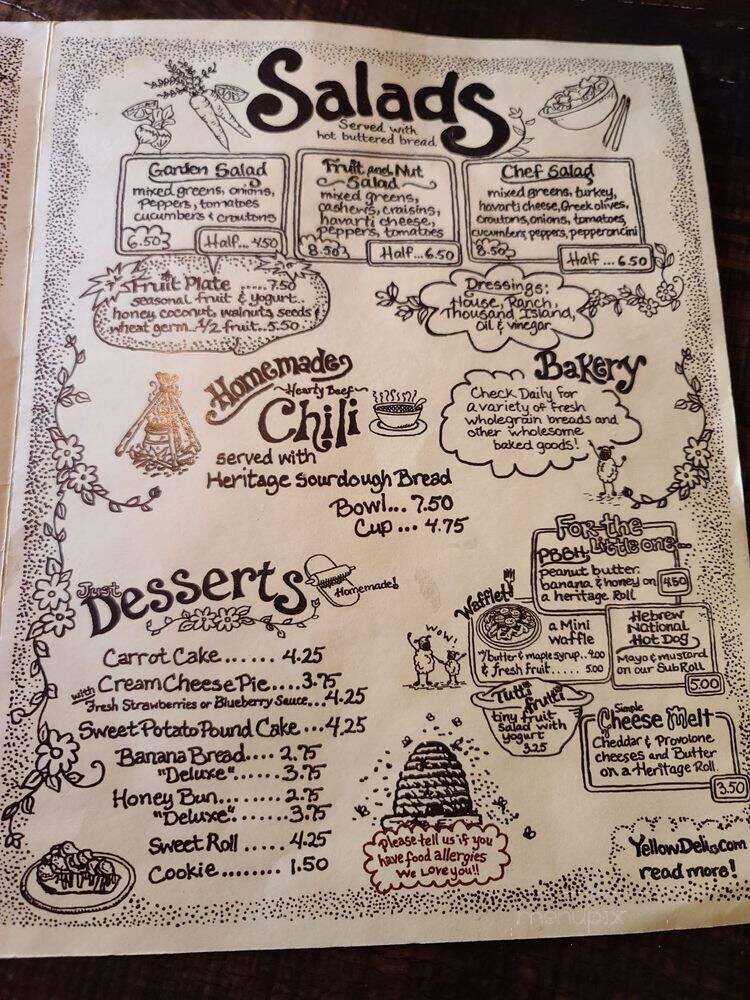 Salads
Served with
hot buttered bread
Garden Salad
mixed greens, onions,
Peppers, tomatoes
cucumbers & croutons
6.50
Half... 4.50
Fruit and Nut
Salad
mixed greens,
cashews, craisins,
havarti cheese,
peppers, tomatoes
8.50
Half...6.50
Chef Salad
mixed greens, turkey,
havarti cheese, Greek olives,
croutons, onions, tomatoes,
cucumbers, peppers, pepperoncini
8.50
Half ... 6.50
Fruit Plate ......7.50
seasonal fruit & yogurt..
honey, coconut, walnuts, seeds &
wheat germ...1/2 fruit..5.50
Dressings:
House, Ranch,
Thousand Island,
Oil & vinegar
Homemade
Hearty Beef
Chili
served with
Heritage Sourdough Bread
Bowl... 7.50
Cup ... 4.75
Bakery
Check Daily for
a variety of fresh
wholegrain breads and
other wholesome
baked goods!
Just
Desserts
Homemade!
Carrot Cake ...... 4.25
Cream Cheese Pie....3.75
with Fresh Strawberries or Blueberry Sauce...4.25
Sweet Potato Pound Cake ...4.25
Banana Bread.... 2.75
"Deluxe"...... 3.75
Honey Bun....... 2.75
"Deluxe"...... 3.75
Sweet Roll ..... 4.25
Cookie........ 1.50
For the
Little one...
PBBH
peanut butter
banana & honey on
a heritage Roll
4.50
Waffle!
a Mini
Waffle
w/butter & maple syrup..4.00
& fresh fruit..... 5.00
Hebrew
National
Hot Dog
Mayo & mustard
on our Sub Roll
5.00
WOW!
Tutti frutti
tiny fruit
Salad with
yogurt
3.25
Simple
Cheese Melt
Cheddar & Provolone
cheeses and Butter
on a Heritage Roll
3.50
please tell us if you
have food allergies
We Love you!!
YellowDeli.com
read more!
menupix